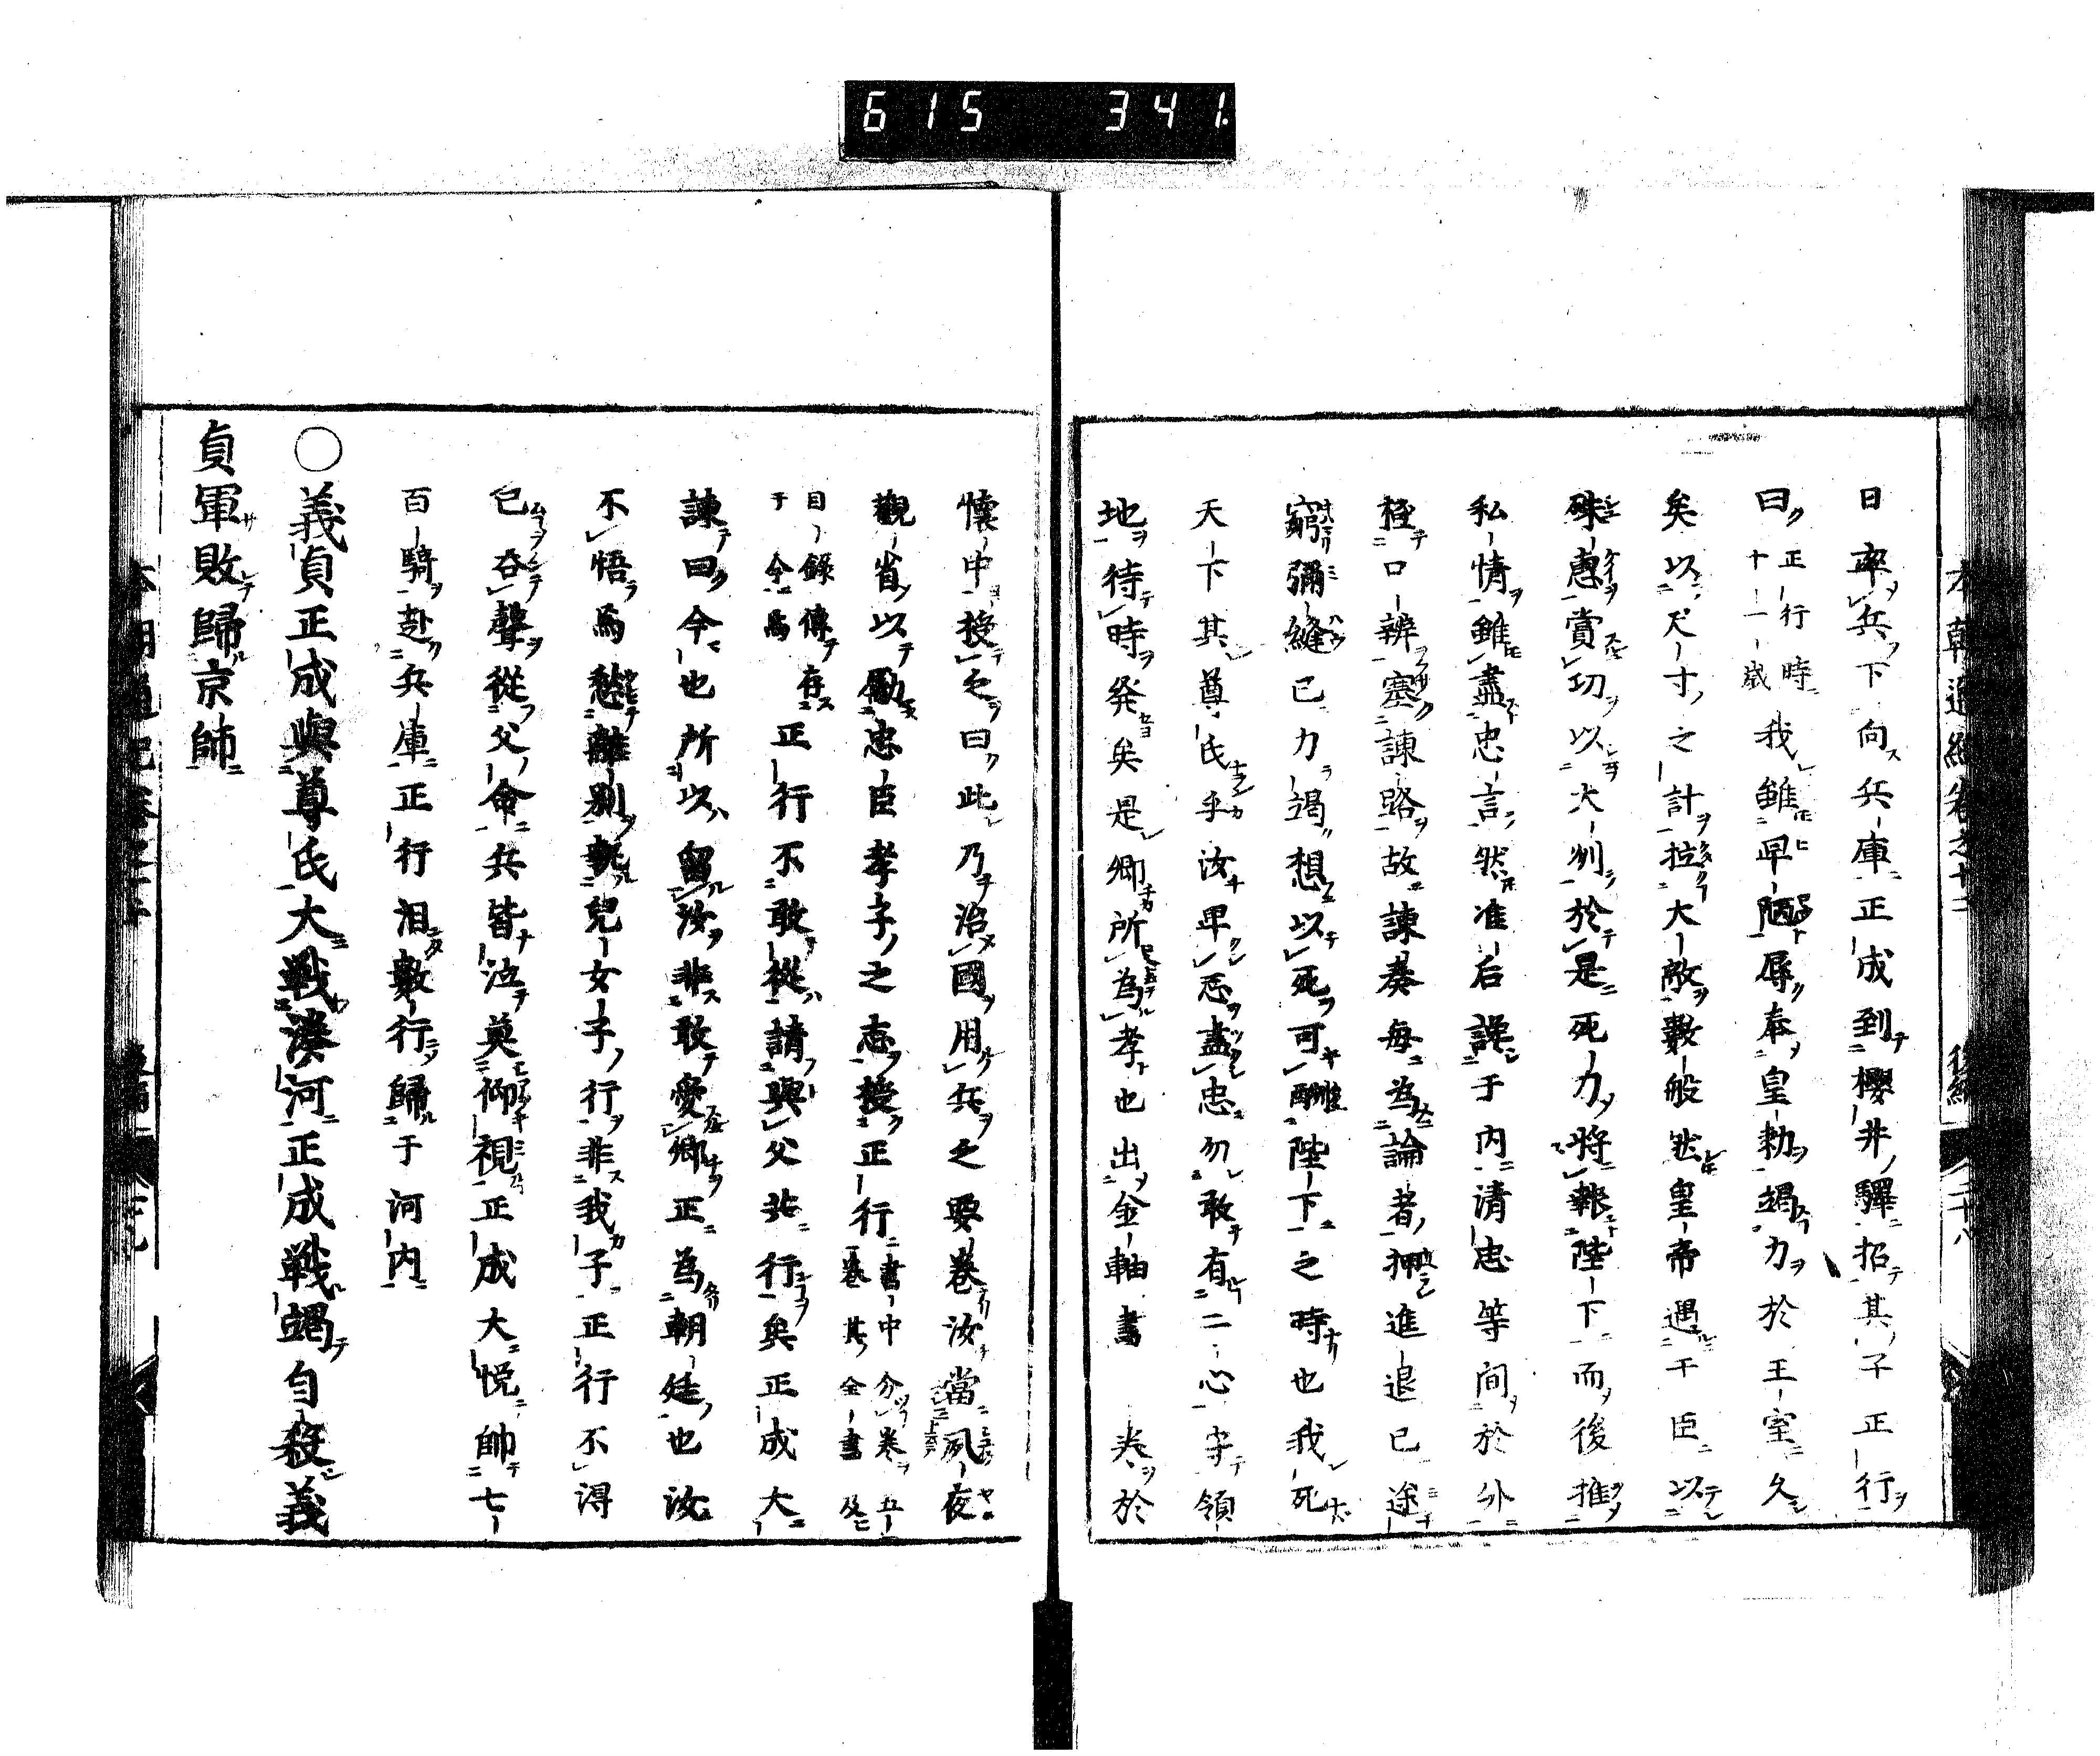 615 341.
日率兵下向兵庫正成到櫻井驛招其子正行
曰正行時十一歲我雖卑陋辱奉皇勅竭力於王室久
矣以尺寸之計拉大敵數般然皇帝遇干臣以
殊惠賞功以大州於是死力將報陛下而後推
私情雖盡忠言然准后謀于内清忠等间於外
極口辨塞諫路故諫奏每為論者押進退已途
窮彌縫已力竭想以死可酬陛下之時也我死
天下其尊氏乎汝早忘盡忠勿敢有二心守領
地待時発矣是卿所為孝也出金軸書 卷於
懐中授之曰此乃治國用兵之要卷汝當夙夜
觀省以勵忠臣孝子之志授正行書中分卷五卷其全書及
目錄傳存于今焉正行不敢從請與父共行矣正成大
諫曰今也所以留汝非敢愛卿正為朝廷也汝
不悟焉愁離別執兒女子行非我子正行不得
已吞聲從父命兵皆泣莫仰視正成大悦帥七
百騎赴兵庫正行泪數行歸于河内
〇義貞正成與尊氏大戰湊河正成戰竭自殺義
貞軍敗歸京師